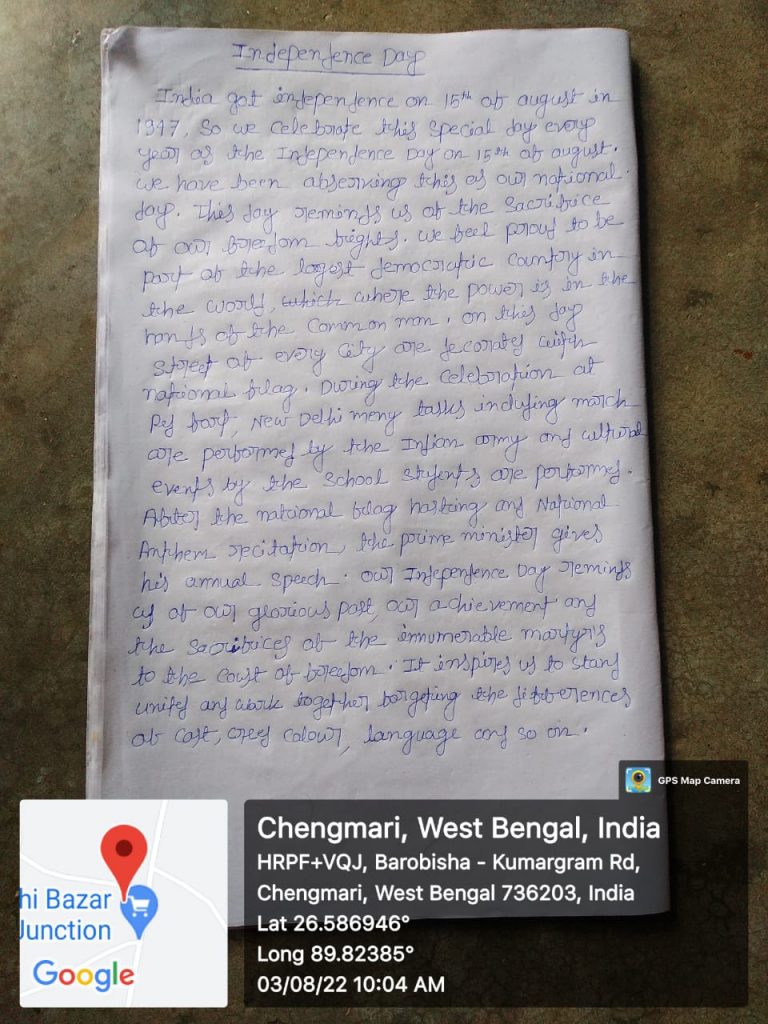 Independence Day
India got independence on 15th of august in
1947. So we celebrate this special day every
year as the Independence Day on 15th of august.
we have been observing this as our national
day. This day reminds us of the Sacrifice
of our freedom fights. we feel proud to be
part of the logest democratic country in
the world, which where the power is in the
hands of the common man. on this day
street of every city are decorates with
national flag. During the celebration at
Red fort, New Delhi meny tasks including march
are performed by the Indian army and cultural
events by the School students are performed.
After the national flag hosting and National
Anthem recitation, the prime minister gives
his annual speech. our Independence Day reminds
us of our glorious past, our achievement and
the sacrifices of the innumerable martyrs
to the caust of freedom. It inspires us to stand
unity and work together forgeting the differences
of cast, creed colour, language and so on.
GPS Map Camera
Chengmari, West Bengal, India
HRPF+VQJ, Barobisha - Kumargram Rd,
Chengmari, West Bengal 736203, India
Lat 26.586946°
Long 89.82385°
03/08/22 10:04 AM
hi Bazar
Junction
Google